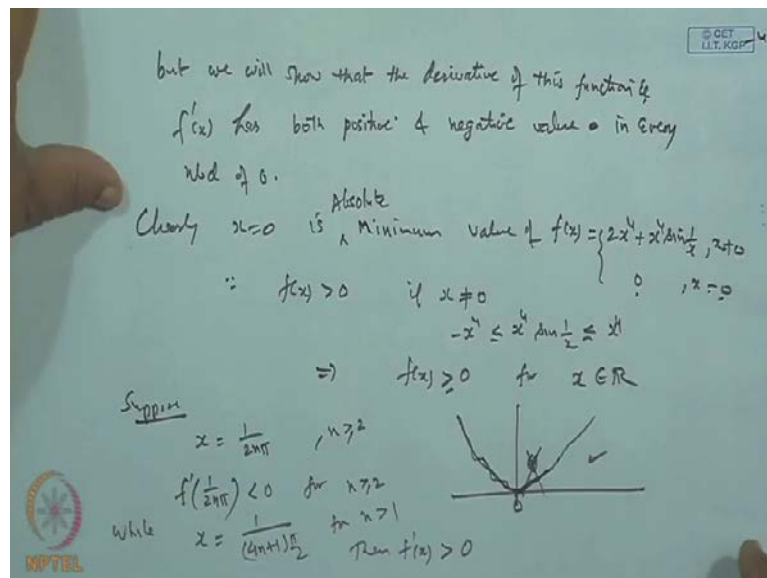 © CET
I.I.T. KGP
but we will show that the derivative of this function is
f'(x) has both positive & negative value in every
nbd of 0.
Clearly x=0 is Absolute Minimum value of f(x) = { 2x⁴ + x⁴ sin 1/x , x≠0
0 , x=0
∵ f(x) > 0 if x ≠ 0
-x⁴ ≤ x⁴ sin 1/x ≤ x⁴
⇒ f(x) ≥ 0 for x ∈ R
Suppose
x = 1/2nπ , n≥2
f'(1/2nπ) < 0 for n≥2
0
while x = 1/(4n+1)π/2 for n>1
Then f'(x) > 0
NPTEL